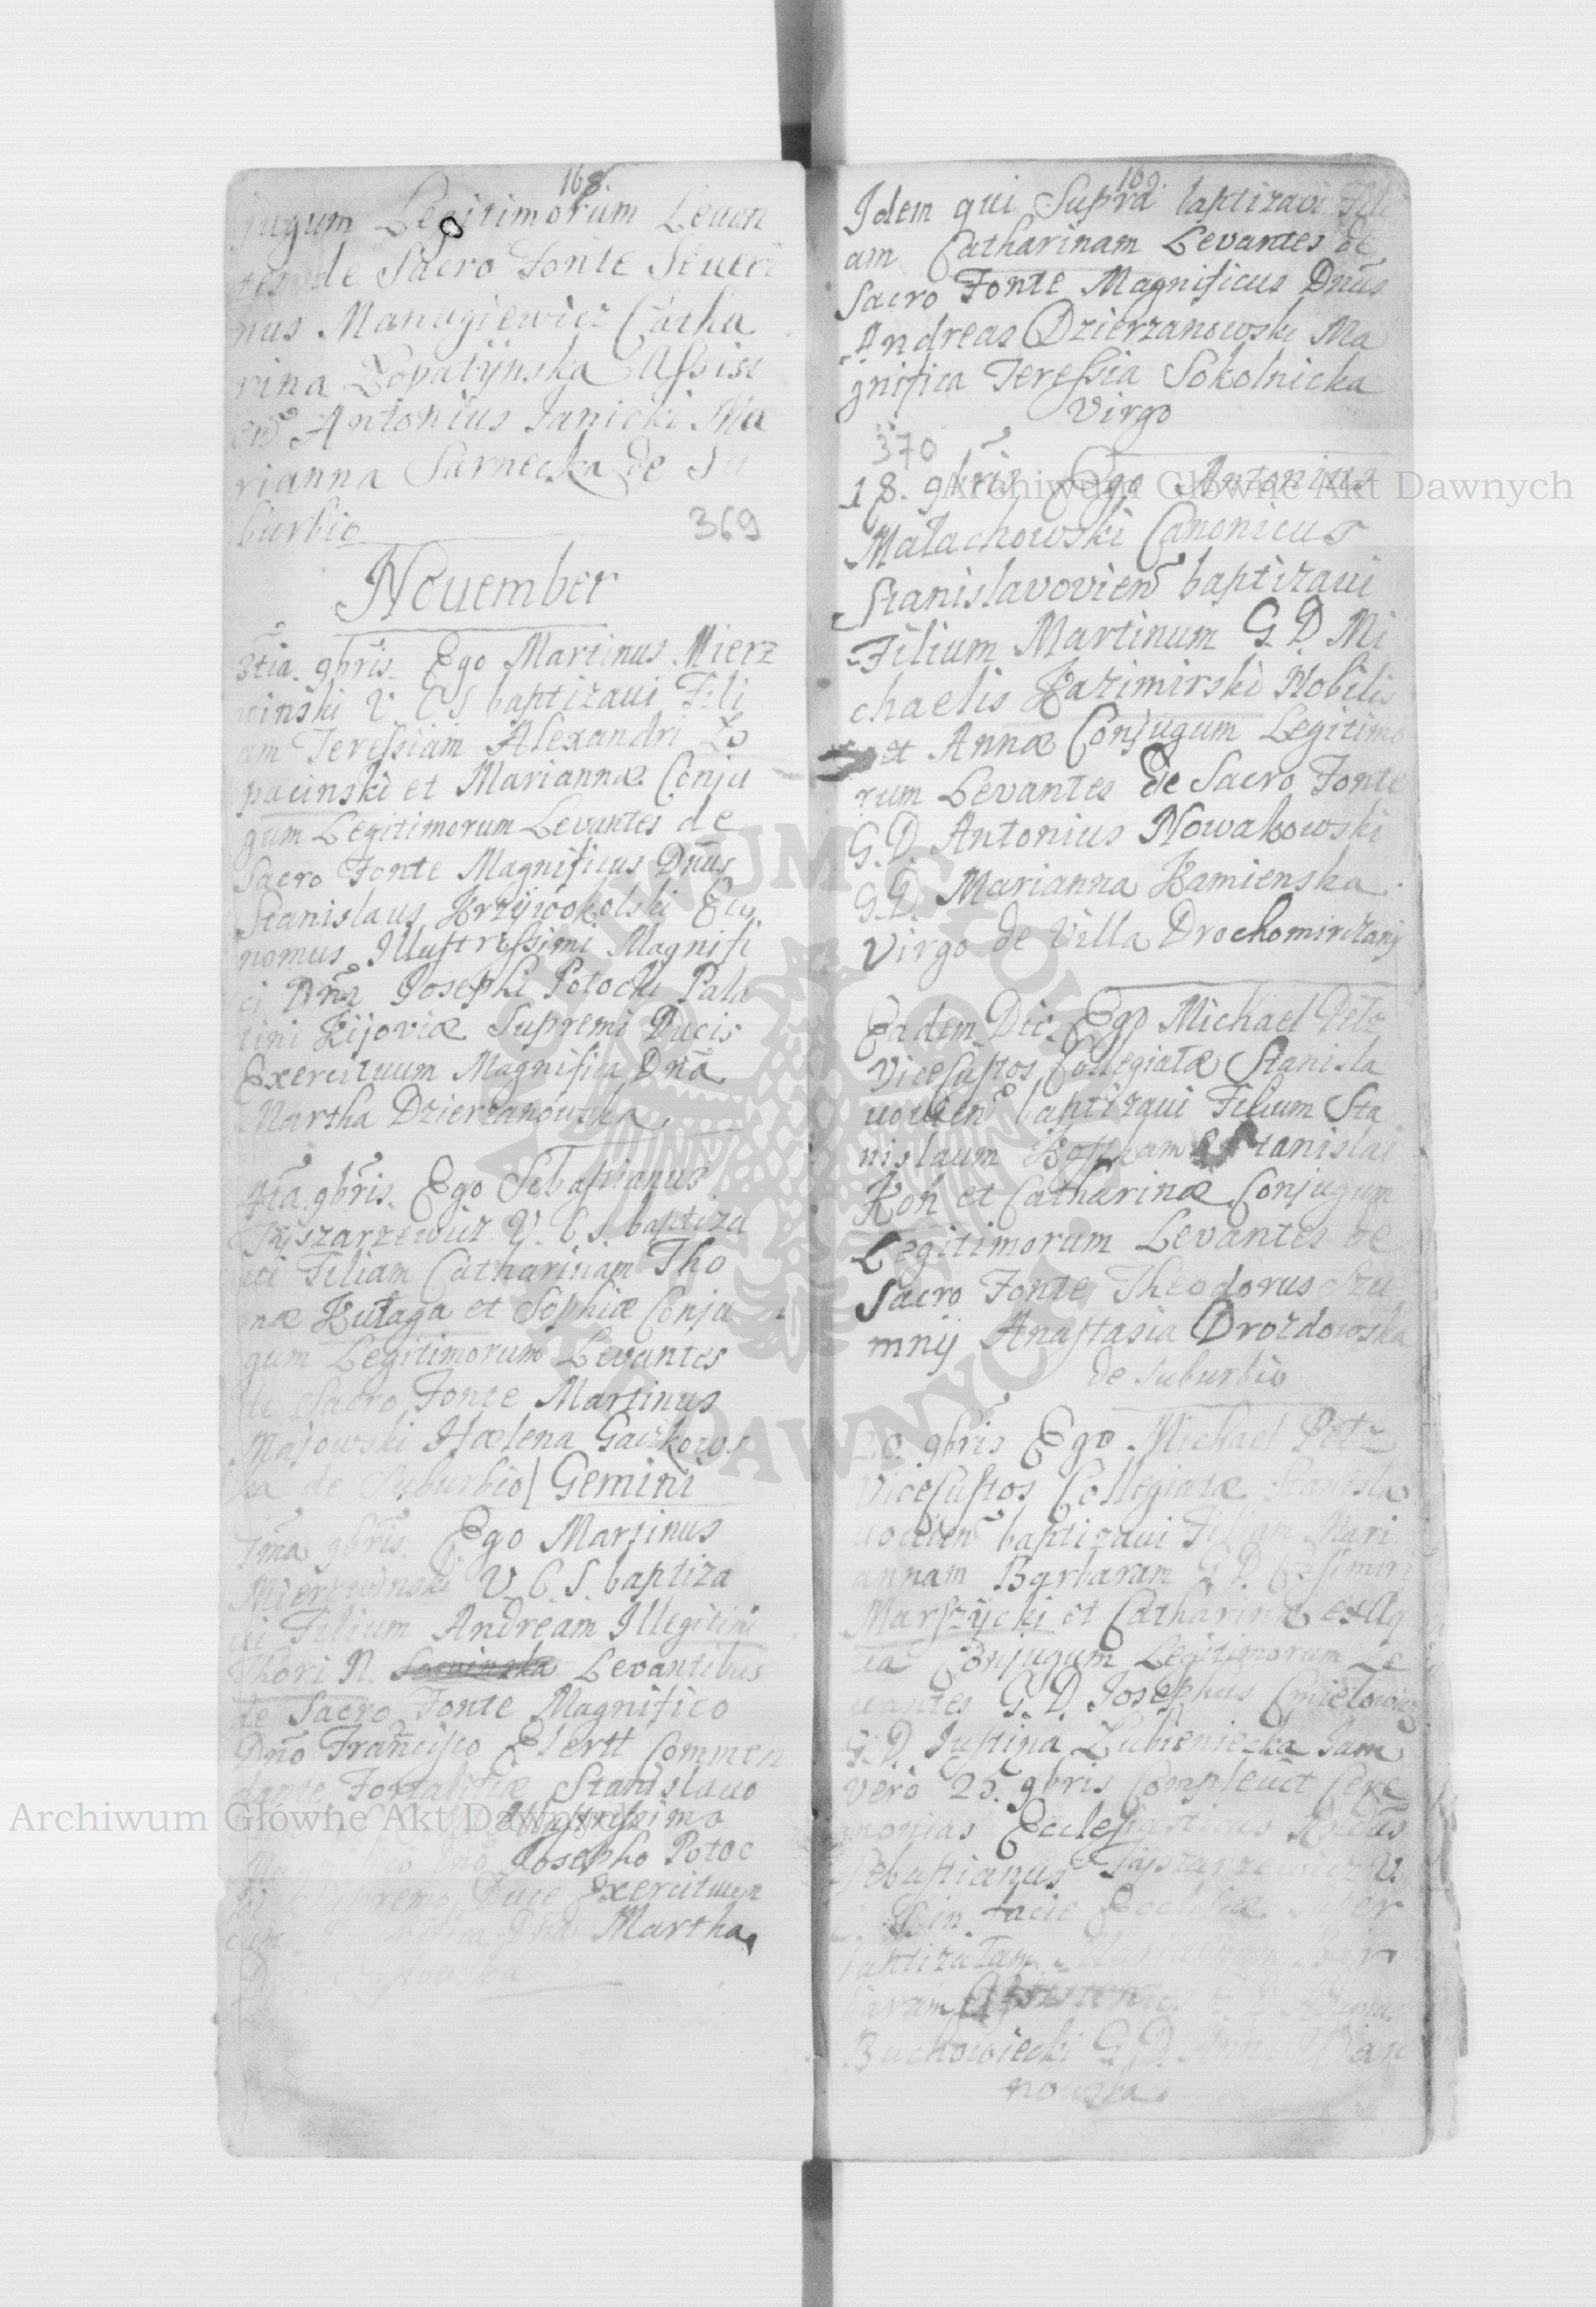 168.
jugum Legitimorum Levan
tes de Sacro Fonte Seueri
nus Manugiewicz Catha
rina Lopatÿnska Assist
Antonius Janicki Ma
rianna Sarnecka de Su
burbio
369
November
3tia. 9bris. Ego Martinus Mierz
winski V. C. S. baptizaui Fili
am Teressiam Alexandri Lo
pacinski et Mariannæ Conju
gum Legitimorum Levantes de
Sacro Fonte Magnificus Dnus
Stanislaus Krzÿwokolski Ecu
nomus Illustrissimi Magnifi
ci Dni Josephi Potocki Pala
tini Kijoviæ Supremi Ducis
Exercituum Magnifica Dna
Martha Dzierzanowska
4ta. 9bris. Ego Sebastianus
Tyszarzewicz V. C. S. baptiza
ui Filiam Catharinam Tho
mæ Kulaga et Sophiæ Conju
gum Legitimorum Levantes
de Sacro Fonte Martinus
Majowski Hælena Gaczkows
ka de Suburbio / Gemini
7ma 9bris. Ego Martinus
Mierzwinski V. C. S. baptiza
ui Filium Andream Illegitimi
Thori N. Levantibus
de Sacro Fonte Magnifico
Dno Francisco Elertt Commen
dante Fortalitiæ Stanislauo
Illustrissimo
Josepho Potoc
ki Supremo Duce Exercituum
Dna Martha
169.
Idem qui Supra baptizaui Fili
am Catharinam Levantes de
Sacro Fonte Magnificus Dnus
Andreas Dzierzanowski Ma
gnifica Teressia Sokolnicka
Virgo
370
18. 9bris Ego Antonius
Malachowski Canonicus
Stanislavovien baptizaui
Filium Martinum G. D. Mi
chaelis Kazimirski Nobilis
et Annæ Conjugum Legitimo
rum Levantes de Sacro Fonte
G. D. Antonius Nowakowski
G. D. Marianna Kamienska
Virgo de Villa Drochomirczany
Eadem Die Ego Michael Petz
Vicecustos Collegiatæ Stanisla
uovien baptizaui Filium Sta
nislaum Stanislai
Koń et Catharinæ Conjugum
Legitimorum Levantes de
Sacro Fonte Theodorus Szu
mnij Anastasia Drozdowska
de suburbio
20. 9bris Ego Michael Petz
Vicecustos Collegiatæ Stanisla
uovien baptizaui Filiam Mari
annam Barbaram G. D. Casimiri
Marszÿcki et Catharinæ ex Aq
ua Conjugum Legitimorum Le
uantes G. D. Josephus Cmielowicz
G. D. Justina Lubieniecka Jam
vero 25. 9bris Compleuit Cere
monias Ecclesiasticas Rndus
Sebastianus Tyszarzewicz V.
in facie Ecclesiæ
baptizatam Mariannam Bar
baram Assistente
Buchowiecki G. D. Anna
nowska
Archiwum Główne Akt Dawnych
Archiwum Główne Akt Dawnych
ARCHIWUM GŁÓWNE AKT DAWNYCH